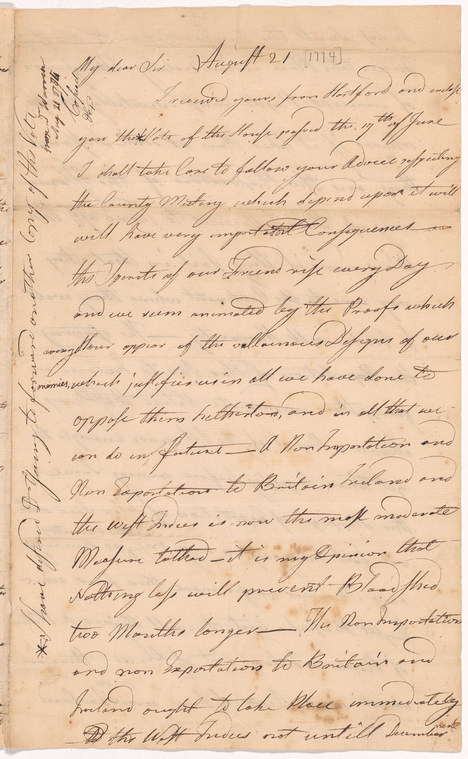 My dear Sir August 21 [1774]
I received yours from Hartford and inclose
you the *Vote of the House passed the 17th of June
I shall take Care to follow your Advice respecting
the County Meeting which depend upon it will
will have very important Consequences —
the Spirits of our Friend rise every Day
and we seem animated by the Proofs which
every Hour appear of the villainous Designs of our
enemies, which justifies us in all we have done to
oppose them hitherto, and in all that we
can do in future — A Non Importation and
Non Exportation to Britain Ireland and
the West Indies is now the most moderate
Measure talked — it is my Opinion that
Nothing less will prevent Bloodshed
two Months longer — The Non Importation
and non Exportation to Britain and
Ireland ought to take Place immediately
to the West Indies not untill December next
* I have desired Dr Young to forward another Copy of the Vote
from J Warren
Aug 21 1774